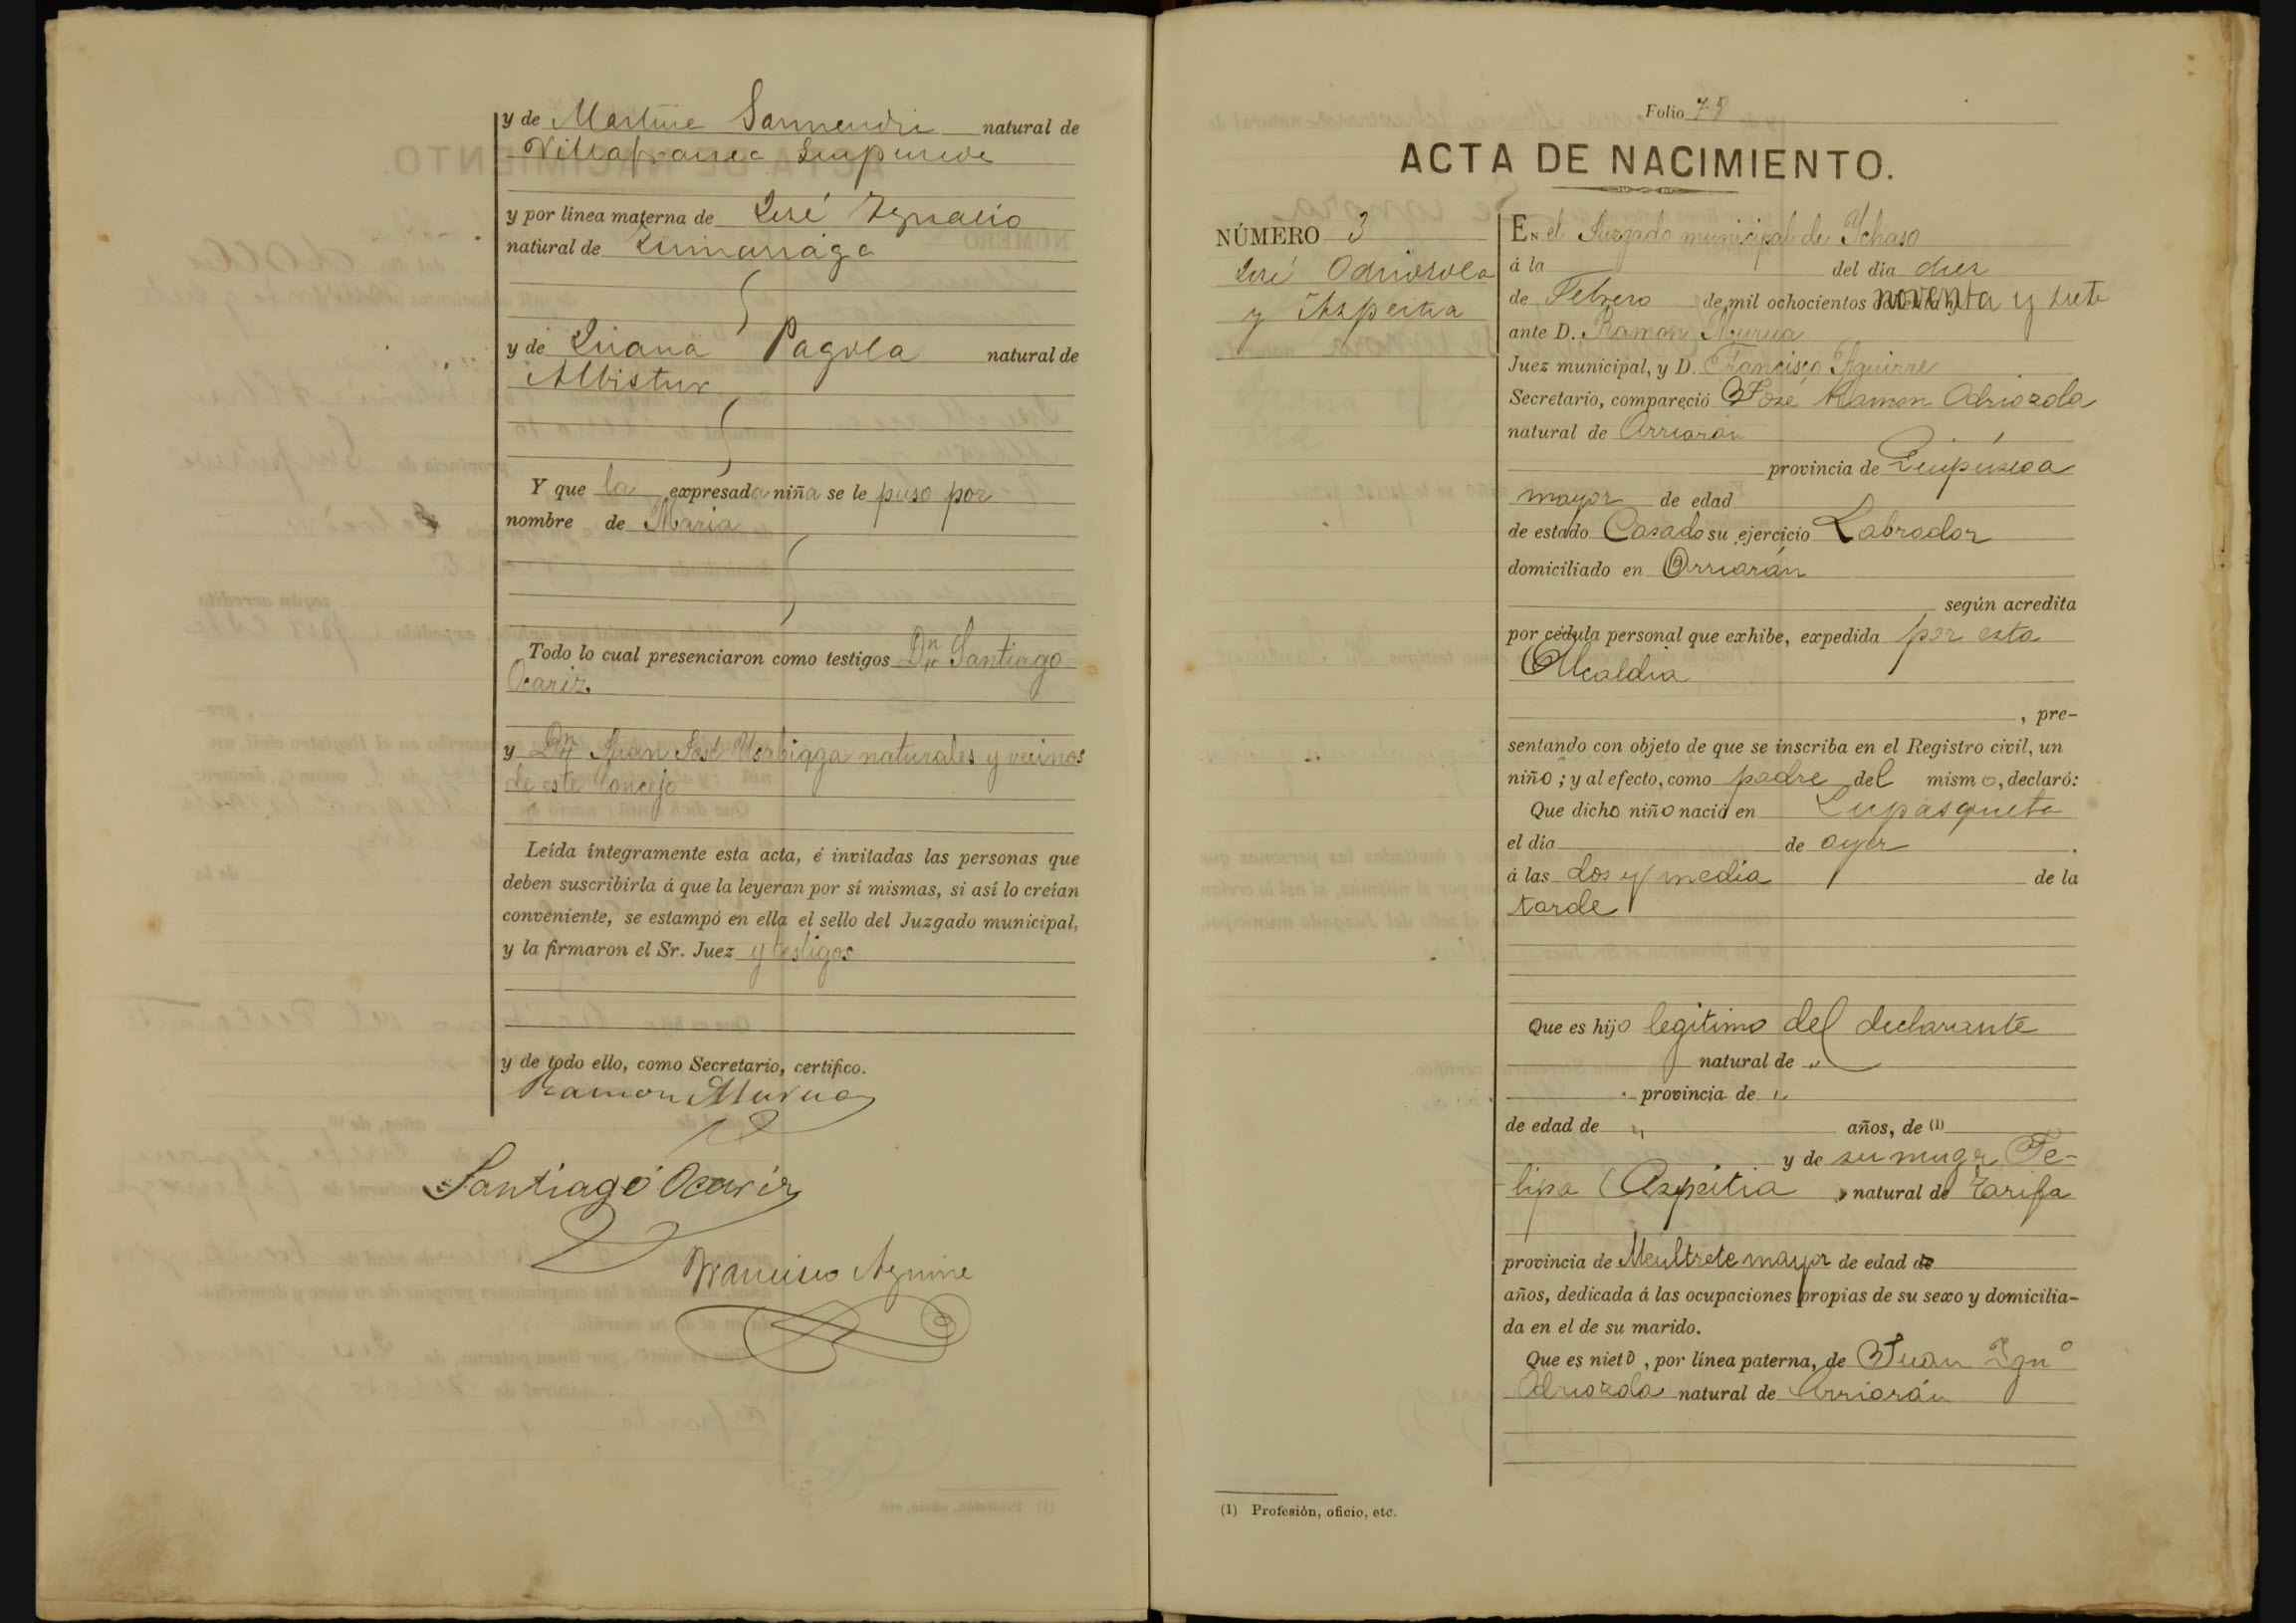 y de Martina Sarmendi natural de
Villafranca Guipuzcoa
y por línea materna de José Ygnacio
natural de Zumarraga
y de Juana Pagola natural de
Albistur
Y que la expresada niña se le puso por
nombre de Maria
Todo lo cual presenciaron como testigos Dn Santiago
Ocariz.
y Dn Juan José Usabiaga naturales y vecinos
de este Concejo
Leída íntegramente esta acta, é invitadas las personas que
deben suscribirla á que la leyeran por sí mismas, si así lo creían
conveniente, se estampó en ella el sello del Juzgado municipal,
y la firmaron el Sr. Juez y testigos
y de todo ello, como Secretario, certifico.
Ramon Murua
Santiago Ocariz
Francisco Aguirre
Folio 78
ACTA DE NACIMIENTO.
NÚMERO 3
José Odriozola
y Azpeitia
En el Juzgado municipal de Ychaso
á la del dia diez
de Febrero de mil ochocientos noventa y siete
ante D. Ramon Murua
Juez municipal, y D. Francisco Aguirre
Secretario, compareció José Ramon Odriozola
natural de Arriarán
provincia de Guipúzcoa
mayor de edad
de estado Casado su ejercicio Labrador
domiciliado en Arriarán
según acredita
por cédula personal que exhibe, expedida por esta
Alcaldia
, pre-
sentando con objeto de que se inscriba en el Registro civil, un
niño; y al efecto, como padre del mismo, declaró:
Que dicho niño nació en Lupasqueta
el día de ayer
á las dos y media de la
tarde
Que es hijo legítimo del declarante
natural de "
provincia de "
de edad de " años, de (1)
y de su muger Fe-
lipa Azpeitia natural de
provincia de mayor de edad de
años, dedicada á las ocupaciones propias de su sexo y domicilia-
da en el de su marido.
Que es nieto, por línea paterna, de Juan Ygnº
Odriozola natural de Arriarán
(1) Profesión, oficio, etc.